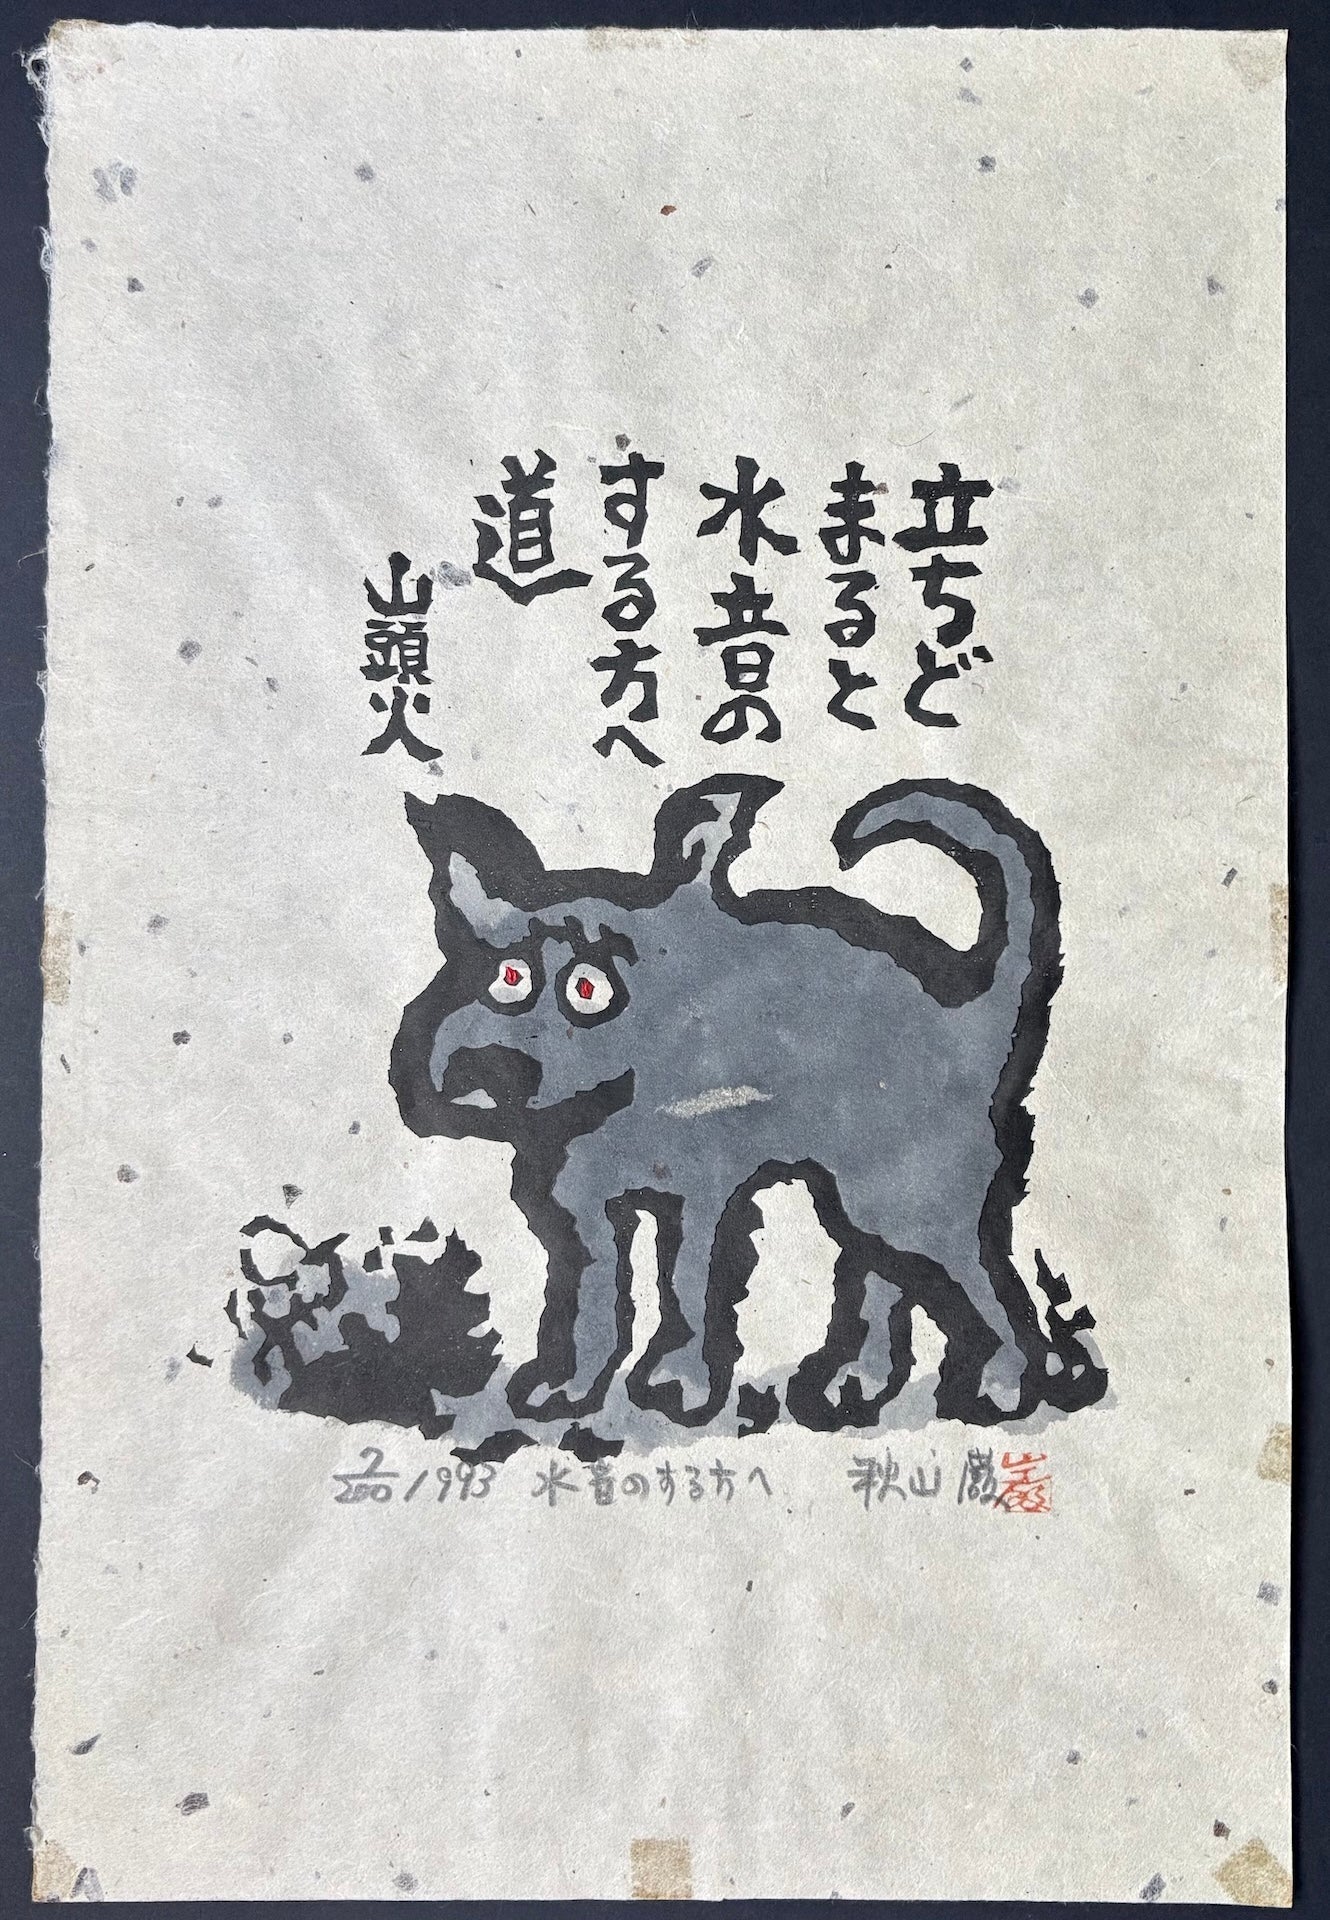 立ちど
まると
水音の
する方へ
道
山頭火
7/200 1993 水音のする方へ 秋山巌